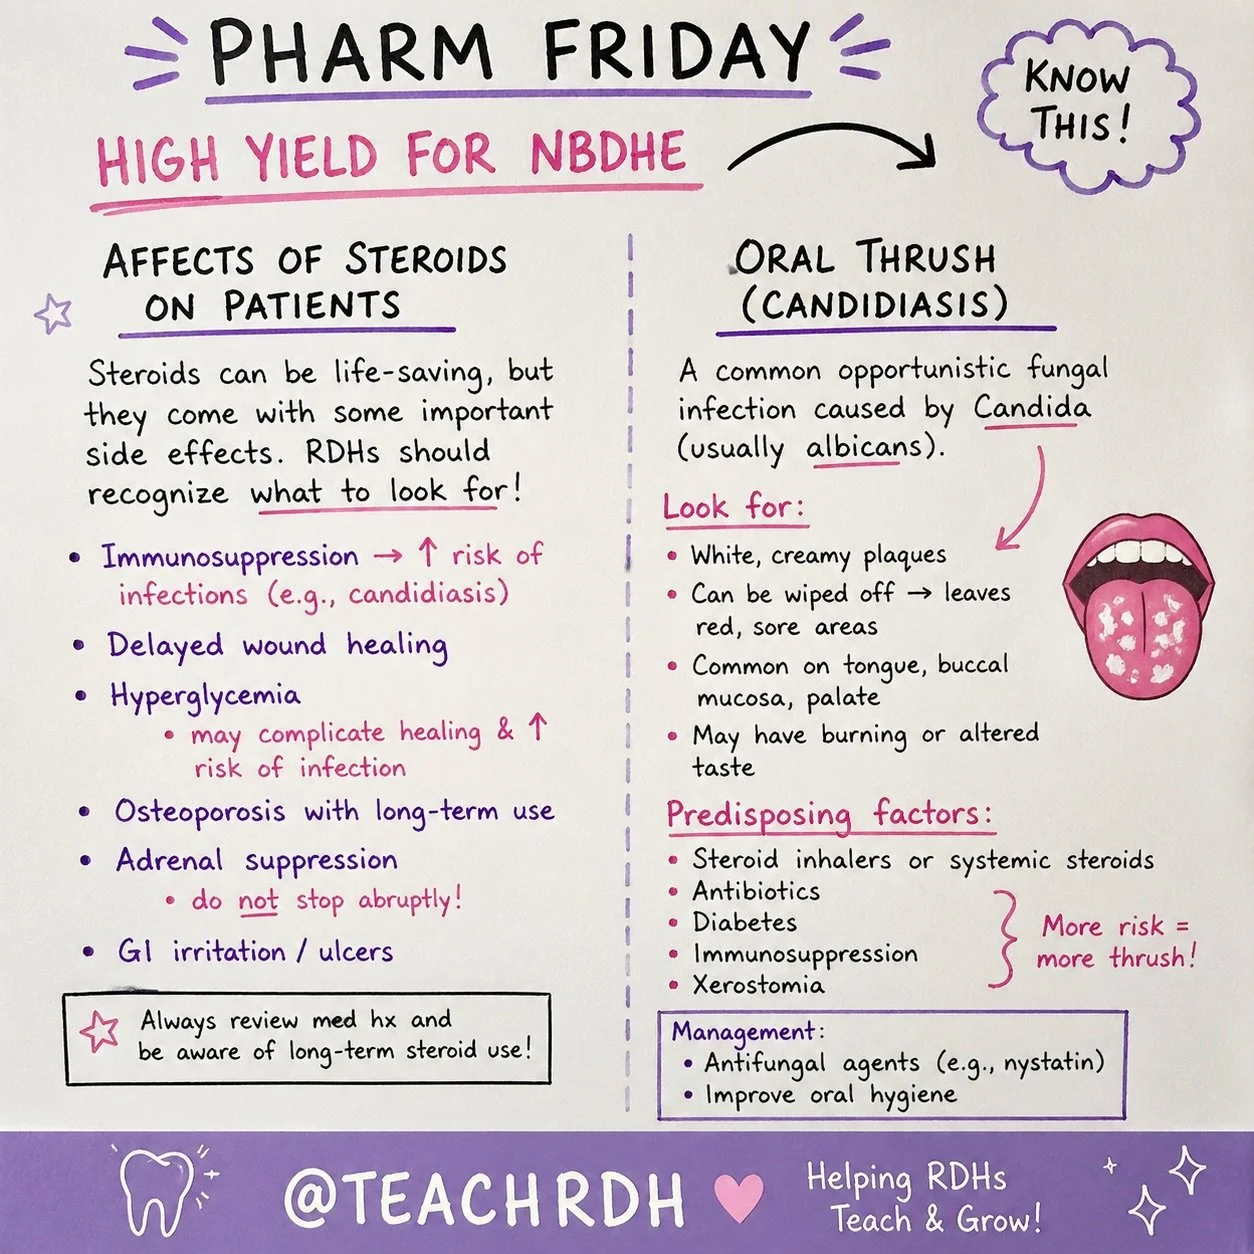 PHARM FRIDAY
HIGH YIELD FOR NBDHE
KNOW
THIS!
AFFECTS OF STEROIDS
ON PATIENTS
Steroids can be life-saving, but
they come with some important
side effects. RDHs should
recognize what to look for!
• Immunosuppression → ↑ risk of
infections (e.g., candidiasis)
• Delayed wound healing
• Hyperglycemia
• may complicate healing & ↑
risk of infection
• Osteoporosis with long-term use
• Adrenal suppression
• do not stop abruptly!
• GI irritation / ulcers
Always review med hx and
be aware of long-term steroid use!
ORAL THRUSH
(CANDIDIASIS)
A common opportunistic fungal
infection caused by Candida
(usually albicans).
Look for:
• White, creamy plaques
• Can be wiped off → leaves
red, sore areas
• Common on tongue, buccal
mucosa, palate
• May have burning or altered
taste
Predisposing factors:
• Steroid inhalers or systemic steroids
• Antibiotics
• Diabetes
• Immunosuppression
• Xerostomia
More risk =
more thrush!
Management:
• Antifungal agents (e.g., nystatin)
• Improve oral hygiene
@TEACHRDH
Helping RDHs
Teach & Grow!